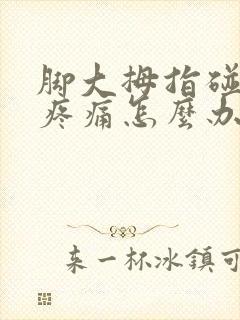 脚大拇指碰
疼痛怎麼办
来一杯冰鎮可